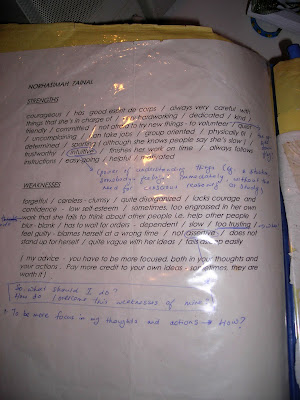 NORHATIMAH ZAINAL
STRENGTHS
courageous / has good esprit de corps / always very careful with
things that she's in charge of / hardworking / dedicated / kind /
friendly / committed / not afraid to try new things - to volunteer / quiet
/ uncomplaining / can take jobs / group oriented / physically fit /
determined / sporting (although she knows people say she's slow) /
trustworthy / intuitive / finishes her work on time / always follows
instructions / easy-going / helpful / motivated
(power of understanding things (eg. a
situation, feelings) immediately without the
need for conscious reasoning or study)
WEAKNESSES
forgetful / careless - clumsy / quite disorganized / lacks courage and
confidence - low self-esteem / sometimes, too engrossed in her own
work that she fails to think about other people i.e. help other people /
blur - blank / has to wait for orders - dependent / slow / too trusting /
feel guilty - blames herself at wrong time / not assertive / does not
stand up for herself / quite vague with her ideas / falls asleep easily
( my advice - you have to be more focused, both in your thoughts and
your actions. Pay more credit to your own ideas - sometimes, they are
worth it )
So, what should I do?
How do I overcome this weakness of mine?
* To be more focus in my thoughts and actions → How?